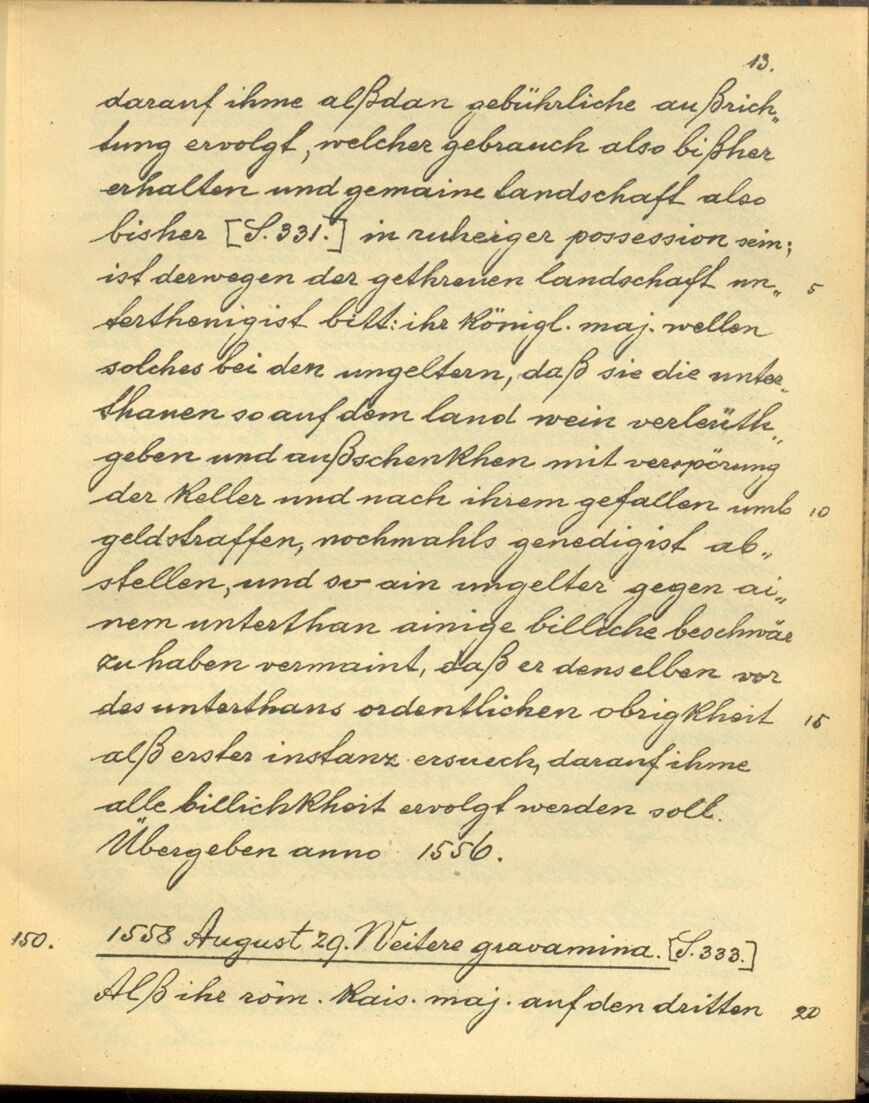 13.
darauf ihme alßdan gebührliche außrich„
tung ervolgt, welcher gebrauch also bißher
erhalten und gemaine landschaft also
bisher [S. 331.] in ruheiger possession sein;
ist derwegen der gethreuen landschaft un„ 5
terthenigist bitt: ihr königl. maj. wellen
solches bei den ungeltern, daß sie die unter„
thanen so auf dem land wein verleüth„
geben und außschenkhen mit verspörung
der keller und nach ihrem gefallen umb 10
geldstraffen, nochmahls genedigist ab„
stellen, und so ain ungelter gegen ai„
nem unterthan ainige billiche beschwär
zu haben vermaint, daß er denselben vor
des unterthans ordentlichen obrigkheit 15
alß erster instanz ersuech, darauf ihme
alle billichkheit ervolgt werden soll.
Übergeben anno 1556.
150. 1558 August 29. Weitere gravamina. [S. 333.]
Alß ihr röm. kais. maj. auf den dritten 20